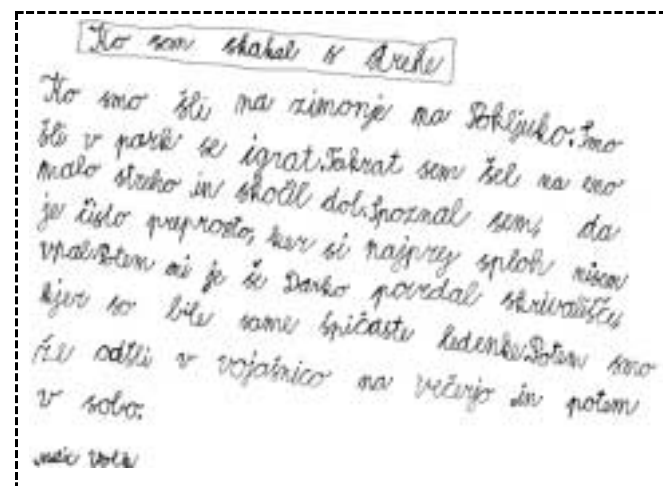 Ko sem skakal s strehe
Ko smo šli na zimonje na Pokljuko. Smo
šli v park se igrat. Takrat sem šel na eno
malo streho in skočil dol. Spoznal sem, da
je čisto preprosto, ker si najprej sploh nisem
upal. Potem mi je še Darko povedal skrivališče,
kjer so bile same špičaste ledenke. Potem smo
že odšli v vojašnico na večerjo in potem
v sobo.
Volk